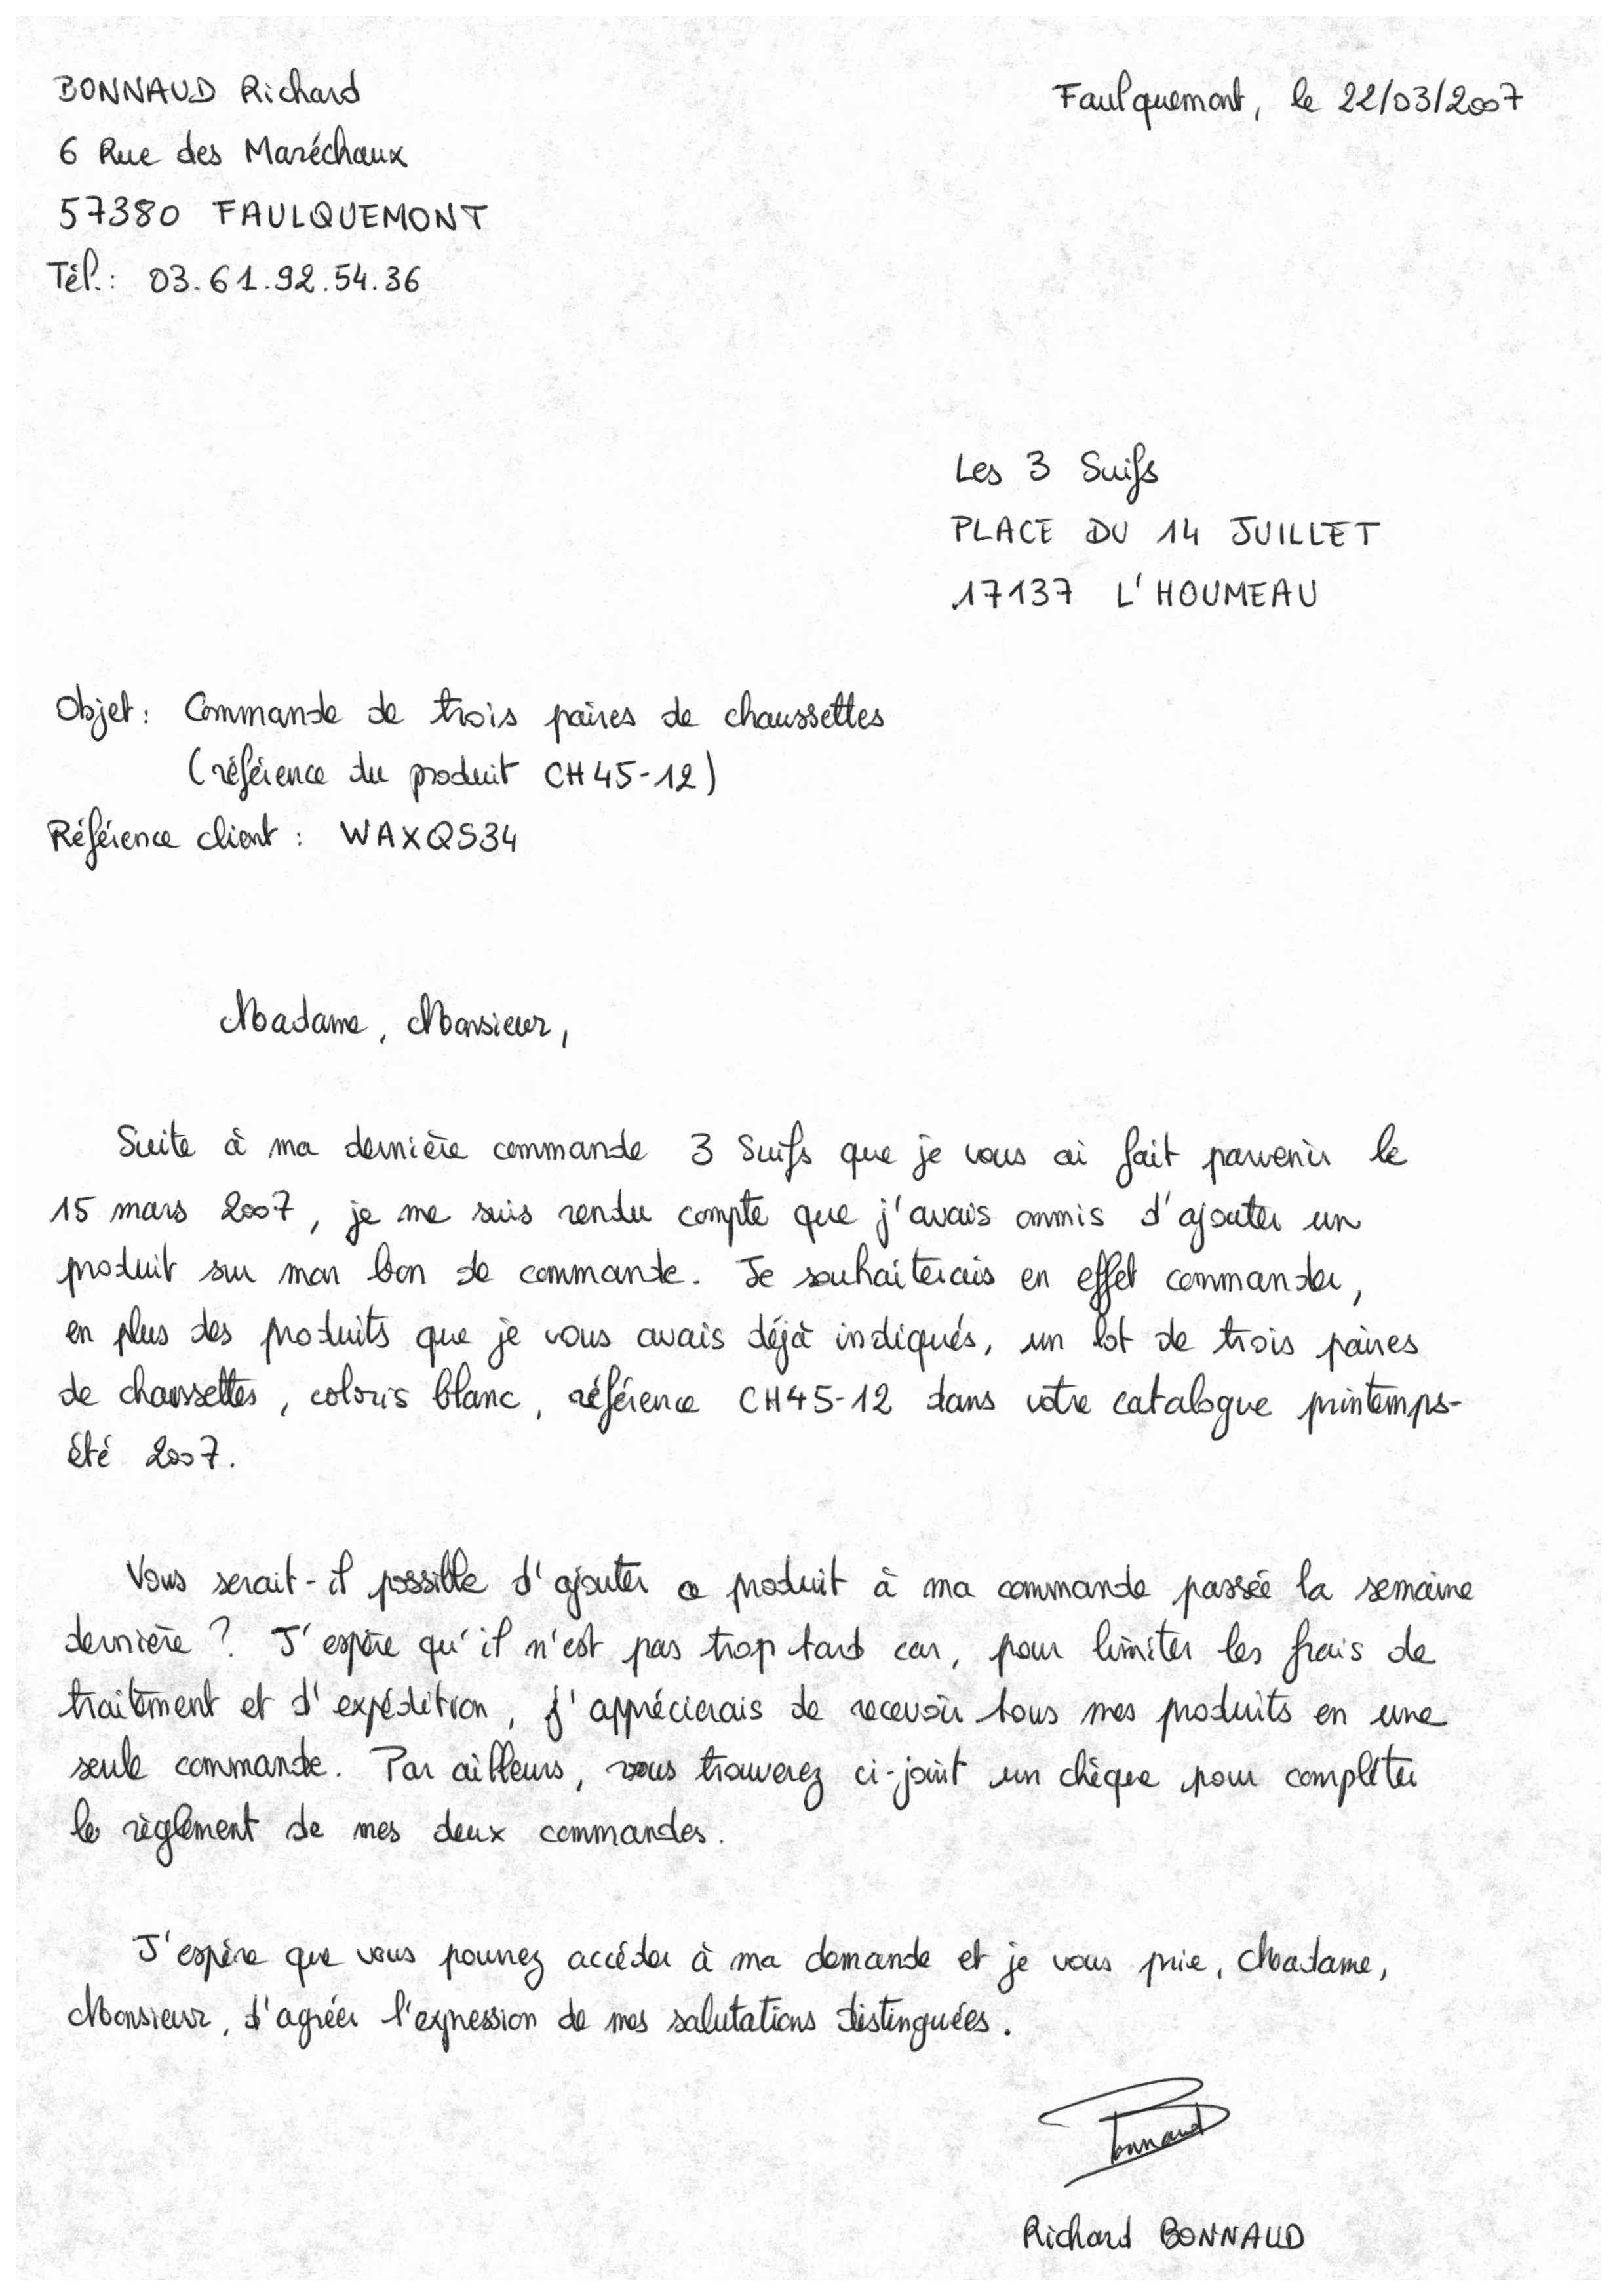 BONNAUD Richard
Faulquemont, le 22/03/2007
6 Rue des Maréchaux
57380 FAULQUEMONT
Tél.: 03.61.92.54.36
Les 3 Suifs
PLACE DU 14 JUILLET
17137 L'HOUMEAU
Objet: Commande de trois paires de chaussettes
(référence du produit CH45-12)
Référence client : WAXQS34
Madame, Monsieur,
Suite à ma dernière commande 3 Suifs que je vous ai fait parvenir le
15 mars 2007, je me suis rendu compte que j'avais ommis d'ajouter un
produit sur mon bon de commande. Je souhaiterais en effet commander,
en plus des produits que je vous avais déjà indiqués, un lot de trois paires
de chaussettes, coloris blanc, référence CH45-12 dans votre catalogue printemps-
été 2007.
Vous serait-il possible d'ajouter ce produit à ma commande passée la semaine
dernière ? J'espère qu'il n'est pas trop tard car, pour limiter les frais de
traitement et d'expédition, j'apprécierais de recevoir tous mes produits en une
seule commande. Par ailleurs, vous trouverez ci-joint un chèque pour compléter
le règlement de mes deux commandes.
J'espère que vous pourrez accéder à ma demande et je vous prie, Madame,
Monsieur, d'agréer l'expression de mes salutations distinguées.
Bonnaud
Richard BONNAUD